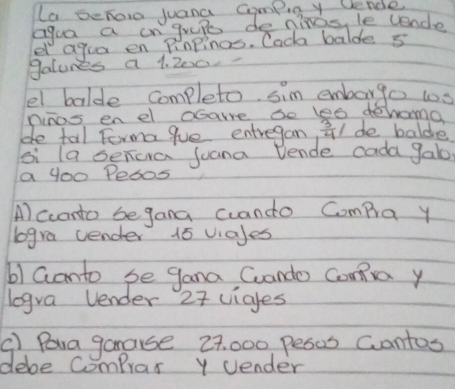 La señora juana compra y vende
agua a un grupo de niños, le vende
el agua en Pinpinas. Cada balde 5
galunes a 1.200
el balde completo. sim embargo los
niños en el acarre se les derrama
de tal Forma que entregan 3/4 de balde
si la señora juana vende cada galo
a 400 Pesos
A) cuanto se gana cuando ComPra y
logra vender 15 viajes
b) cuanto se gana Cuando Compra y
logra vender 27 viajes
c) Para ganarse 27.000 pesos cuantos
debe ComPrar y vender